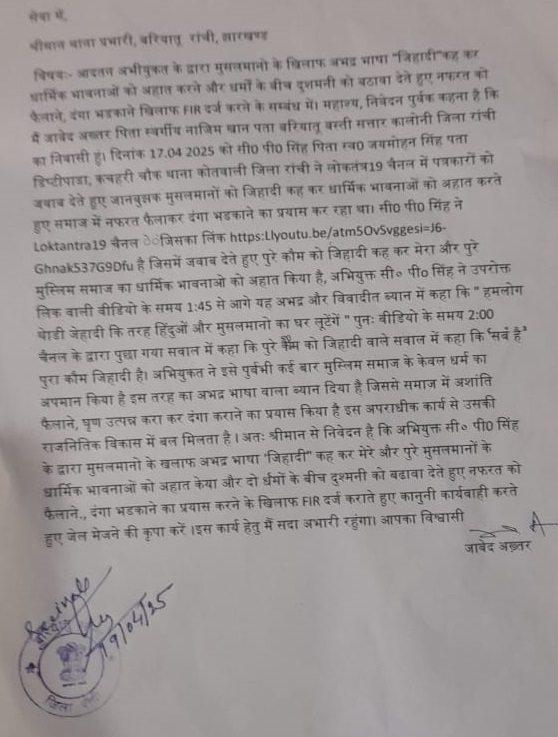 सेवा में,
श्रीमान थाना प्रभारी, बरियातू रांची, झारखण्ड
विषयः- आदतन अभीयुक्त के द्वारा मुसलमानो के खिलाफ अभद्र भाषा "जिहादी"कह कर
धार्मिक भावनाओं को अहात करने और धर्मों के बीच दुशमनी को बठावा देते हुए नफरत को
फैलाने, दंगा भडकाने खिलाफ FIR दर्ज करने के सम्बंध में। महाश्य, निवेदन पुर्वक कहना है कि
मैं जावेद अख्तर पिता स्वर्गीय नाजिम खान पता बरियातू बस्ती सत्तार कालोनी जिला रांची
का निवासी हूं। दिनांक 17.04 2025 को सी0 पी0 सिंह पिता स्व0 जयमोहन सिंह पता
डिप्टीपाडा, कचहरी चौक थाना कोतवाली जिला रांची ने लोकतंत्र19 चैनल में पत्रकारों को
जवाब देते हुए जानबुझक मुसलमानों को जिहादी कह कर धार्मिक भावनाओं को अहात करते
हुए समाज में नफरत फैलाकर दंगा भडकाने का प्रयास कर रहा था। सी0 पी0 सिंह ने
Loktantra19 चैनल जिसका लिंक https:Llyoutu.be/atm5OvSvggesi=J6-
Ghnak537G9Dfu है जिसमें जवाब देते हुए पुरे कौम को जिहादी कह कर मेरा और पुरे
मुस्लिम समाज का धार्मिक भावनाओ को अहात किया है, अभियुक्त सी० पी० सिंह ने उपरोक्त
लिक वाली वीडियो के समय 1:45 से आगे यह अभद्र और विवादीत ब्यान में कहा कि " हमलोग
थोडी जेहादी कि तरह हिंदुओं और मुसलमानो का घर लूटेगें " पुनः वीडियो के समय 2:00
चैनल के द्वारा पुछा गया सवाल में कहा कि पुरे कौम को जिहादी वाले सवाल में कहा कि 'सब है'
पुरा कौम जिहादी है। अभियुक्त ने इसे पुर्वभी कई बार मुस्लिम समाज के केवल धर्म का
अपमान किया है इस तरह का अभद्र भाषा वाला ब्यान दिया है जिससे समाज में अशांति
फैलाने, घृण उत्पन्न करा कर दंगा कराने का प्रयास किया है इस अपराधीक कार्य से उसकी
राजनितिक विकास में बल मिलता है। अतः श्रीमान से निवेदन है कि अभियुक्त सी० पी0 सिंह
के द्वारा मुसलमानो के खलाफ अभद्र भाषा 'जिहादी" कह कर मेरे और पुरे मुसलमानों के
धार्मिक भावनाओं को अहात केया और दो र्धमों के बीच दुश्मनी को बढावा देते हुए नफरत को
फैलाने., दंगा भडकाने का प्रयास करने के खिलाफ FIR दर्ज कराते हुए कानुनी कार्यवाही करते
हुए जेल मेजने की कृपा करें ।इस कार्य हेतु मैं सदा अभारी रहुंगा। आपका विश्वासी
जावेद अख़्तर
19/04/25
जिला